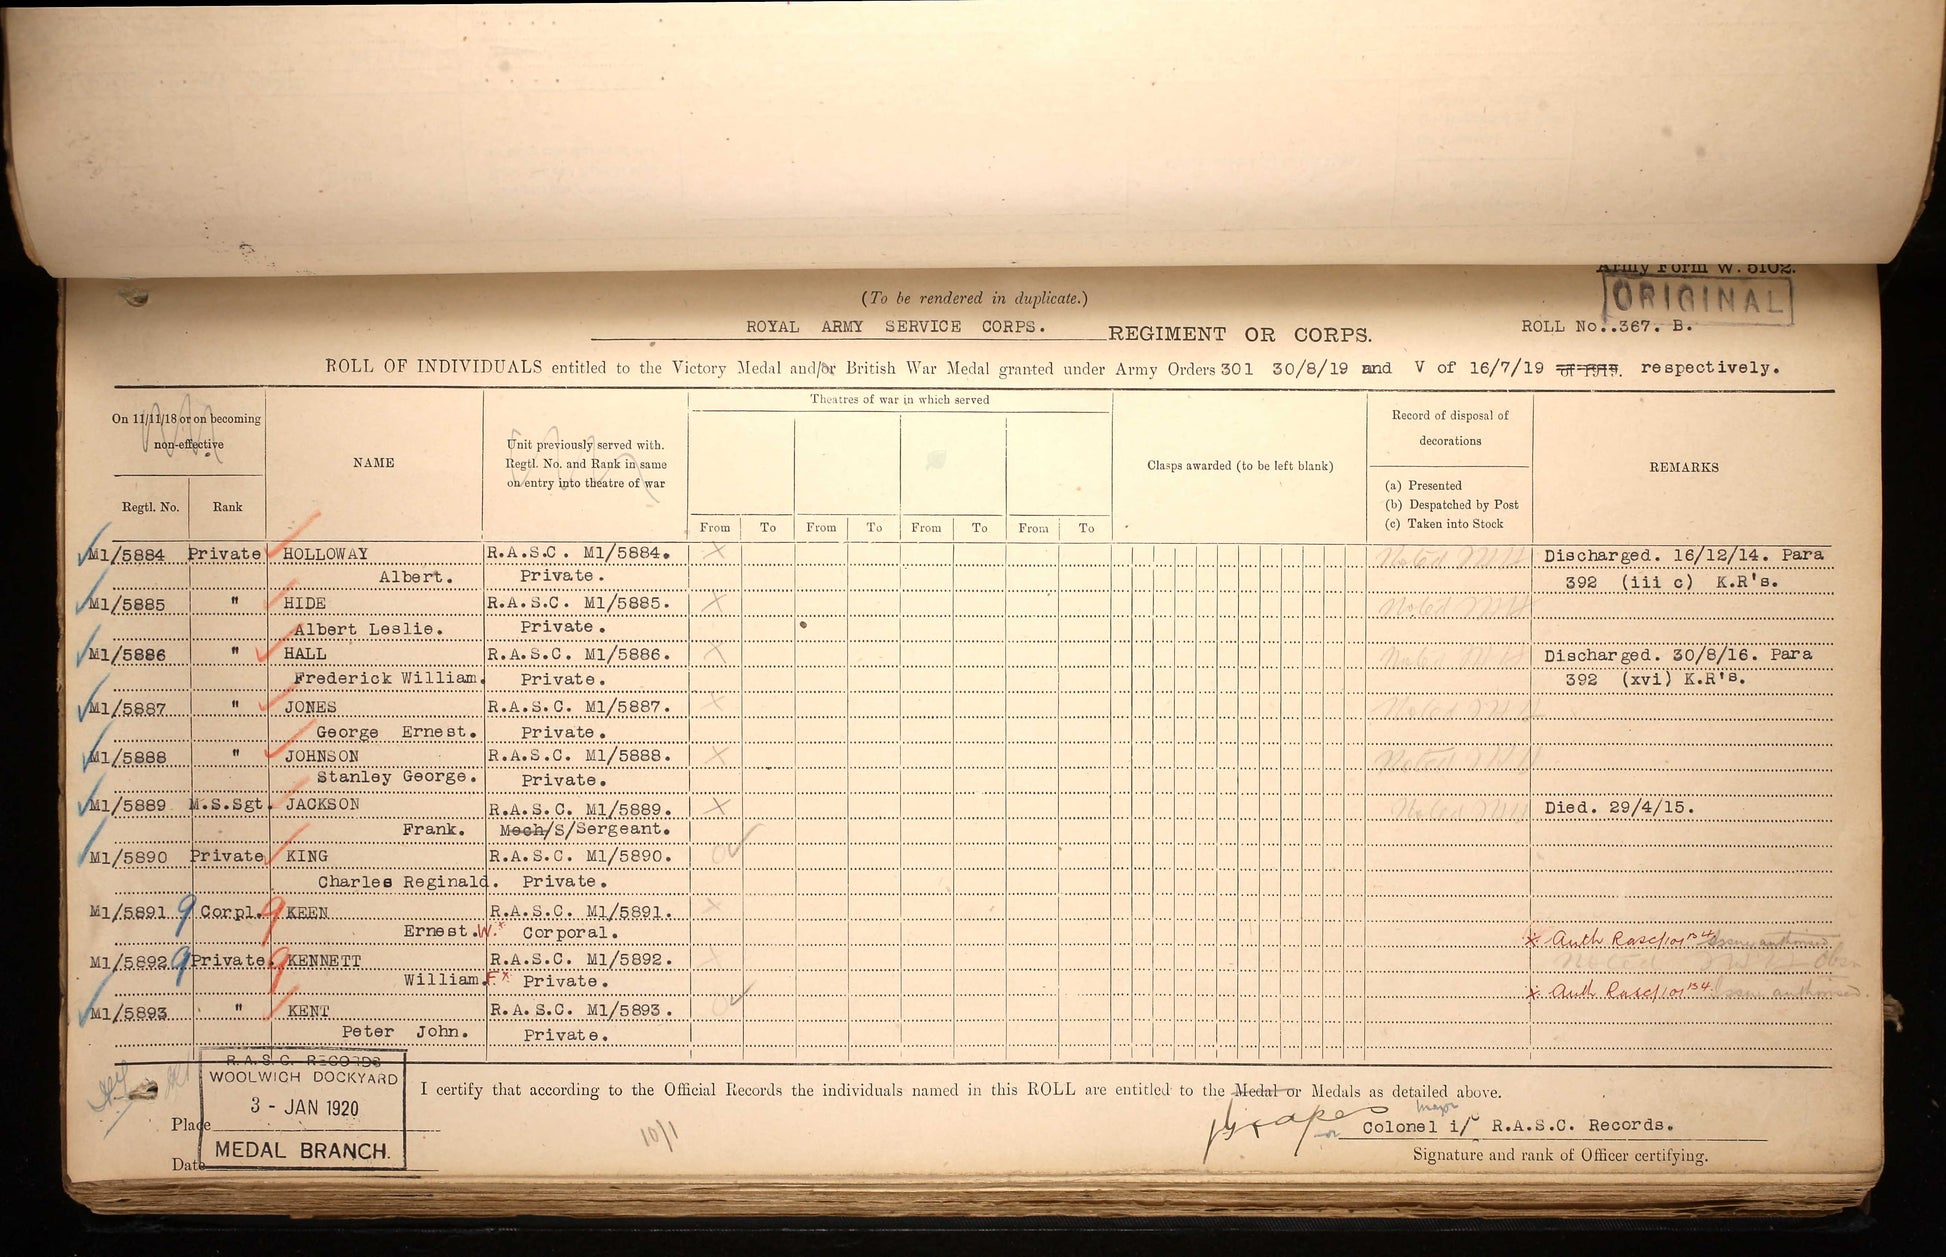 Army Form W. 5102.
ORIGINAL
(To be rendered in duplicate.)
ROYAL ARMY SERVICE CORPS. REGIMENT OR CORPS.
ROLL No..367. B.
ROLL OF INDIVIDUALS entitled to the Victory Medal and/or British War Medal granted under Army Orders 301 30/8/19 and V of 16/7/19 of 1919. respectively.
On 11/11/18 or on becoming non-effective
Regtl. No.
Rank
NAME
Unit previously served with. Regtl. No. and Rank in same on entry into theatre of war
Theatres of war in which served
From To From To From To From To
Clasps awarded (to be left blank)
Record of disposal of decorations
(a) Presented
(b) Despatched by Post
(c) Taken into Stock
REMARKS
M1/5884 Private HOLLOWAY R.A.S.C. M1/5884. X Noted Discharged. 16/12/14. Para
Albert. Private. 392 (iii c) K.R's.
M1/5885 " HIDE R.A.S.C. M1/5885. X Noted
Albert Leslie. Private.
M1/5886 " HALL R.A.S.C. M1/5886. X Noted Discharged. 30/8/16. Para
Frederick William. Private. 392 (xvi) K.R's.
M1/5887 " JONES R.A.S.C. M1/5887. X Noted
George Ernest. Private.
M1/5888 " JOHNSON R.A.S.C. M1/5888. X Noted
Stanley George. Private.
M1/5889 M.S.Sgt. JACKSON R.A.S.C. M1/5889. X Noted Died. 29/4/15.
Frank. Mech/S/Sergeant.
M1/5890 Private KING R.A.S.C. M1/5890.
Charles Reginald. Private.
M1/5891 9 Corpl. 9 KEEN R.A.S.C. M1/5891. X
Ernest. W.* Corporal. * Auth Rasc/101 Issue authorised
M1/5892 9 Private. 9 KENNETT R.A.S.C. M1/5892. X Noted
William. F* Private. * Auth Rasc/101 Issue authorised
M1/5893 " KENT R.A.S.C. M1/5893.
Peter John. Private.
R.A.S.C. RECORDS
WOOLWICH DOCKYARD
3 - JAN 1920
MEDAL BRANCH.
I certify that according to the Official Records the individuals named in this ROLL are entitled to the Medal or Medals as detailed above.
Place
10/1
Major
Colonel i/c R.A.S.C. Records.
Date
Signature and rank of Officer certifying.